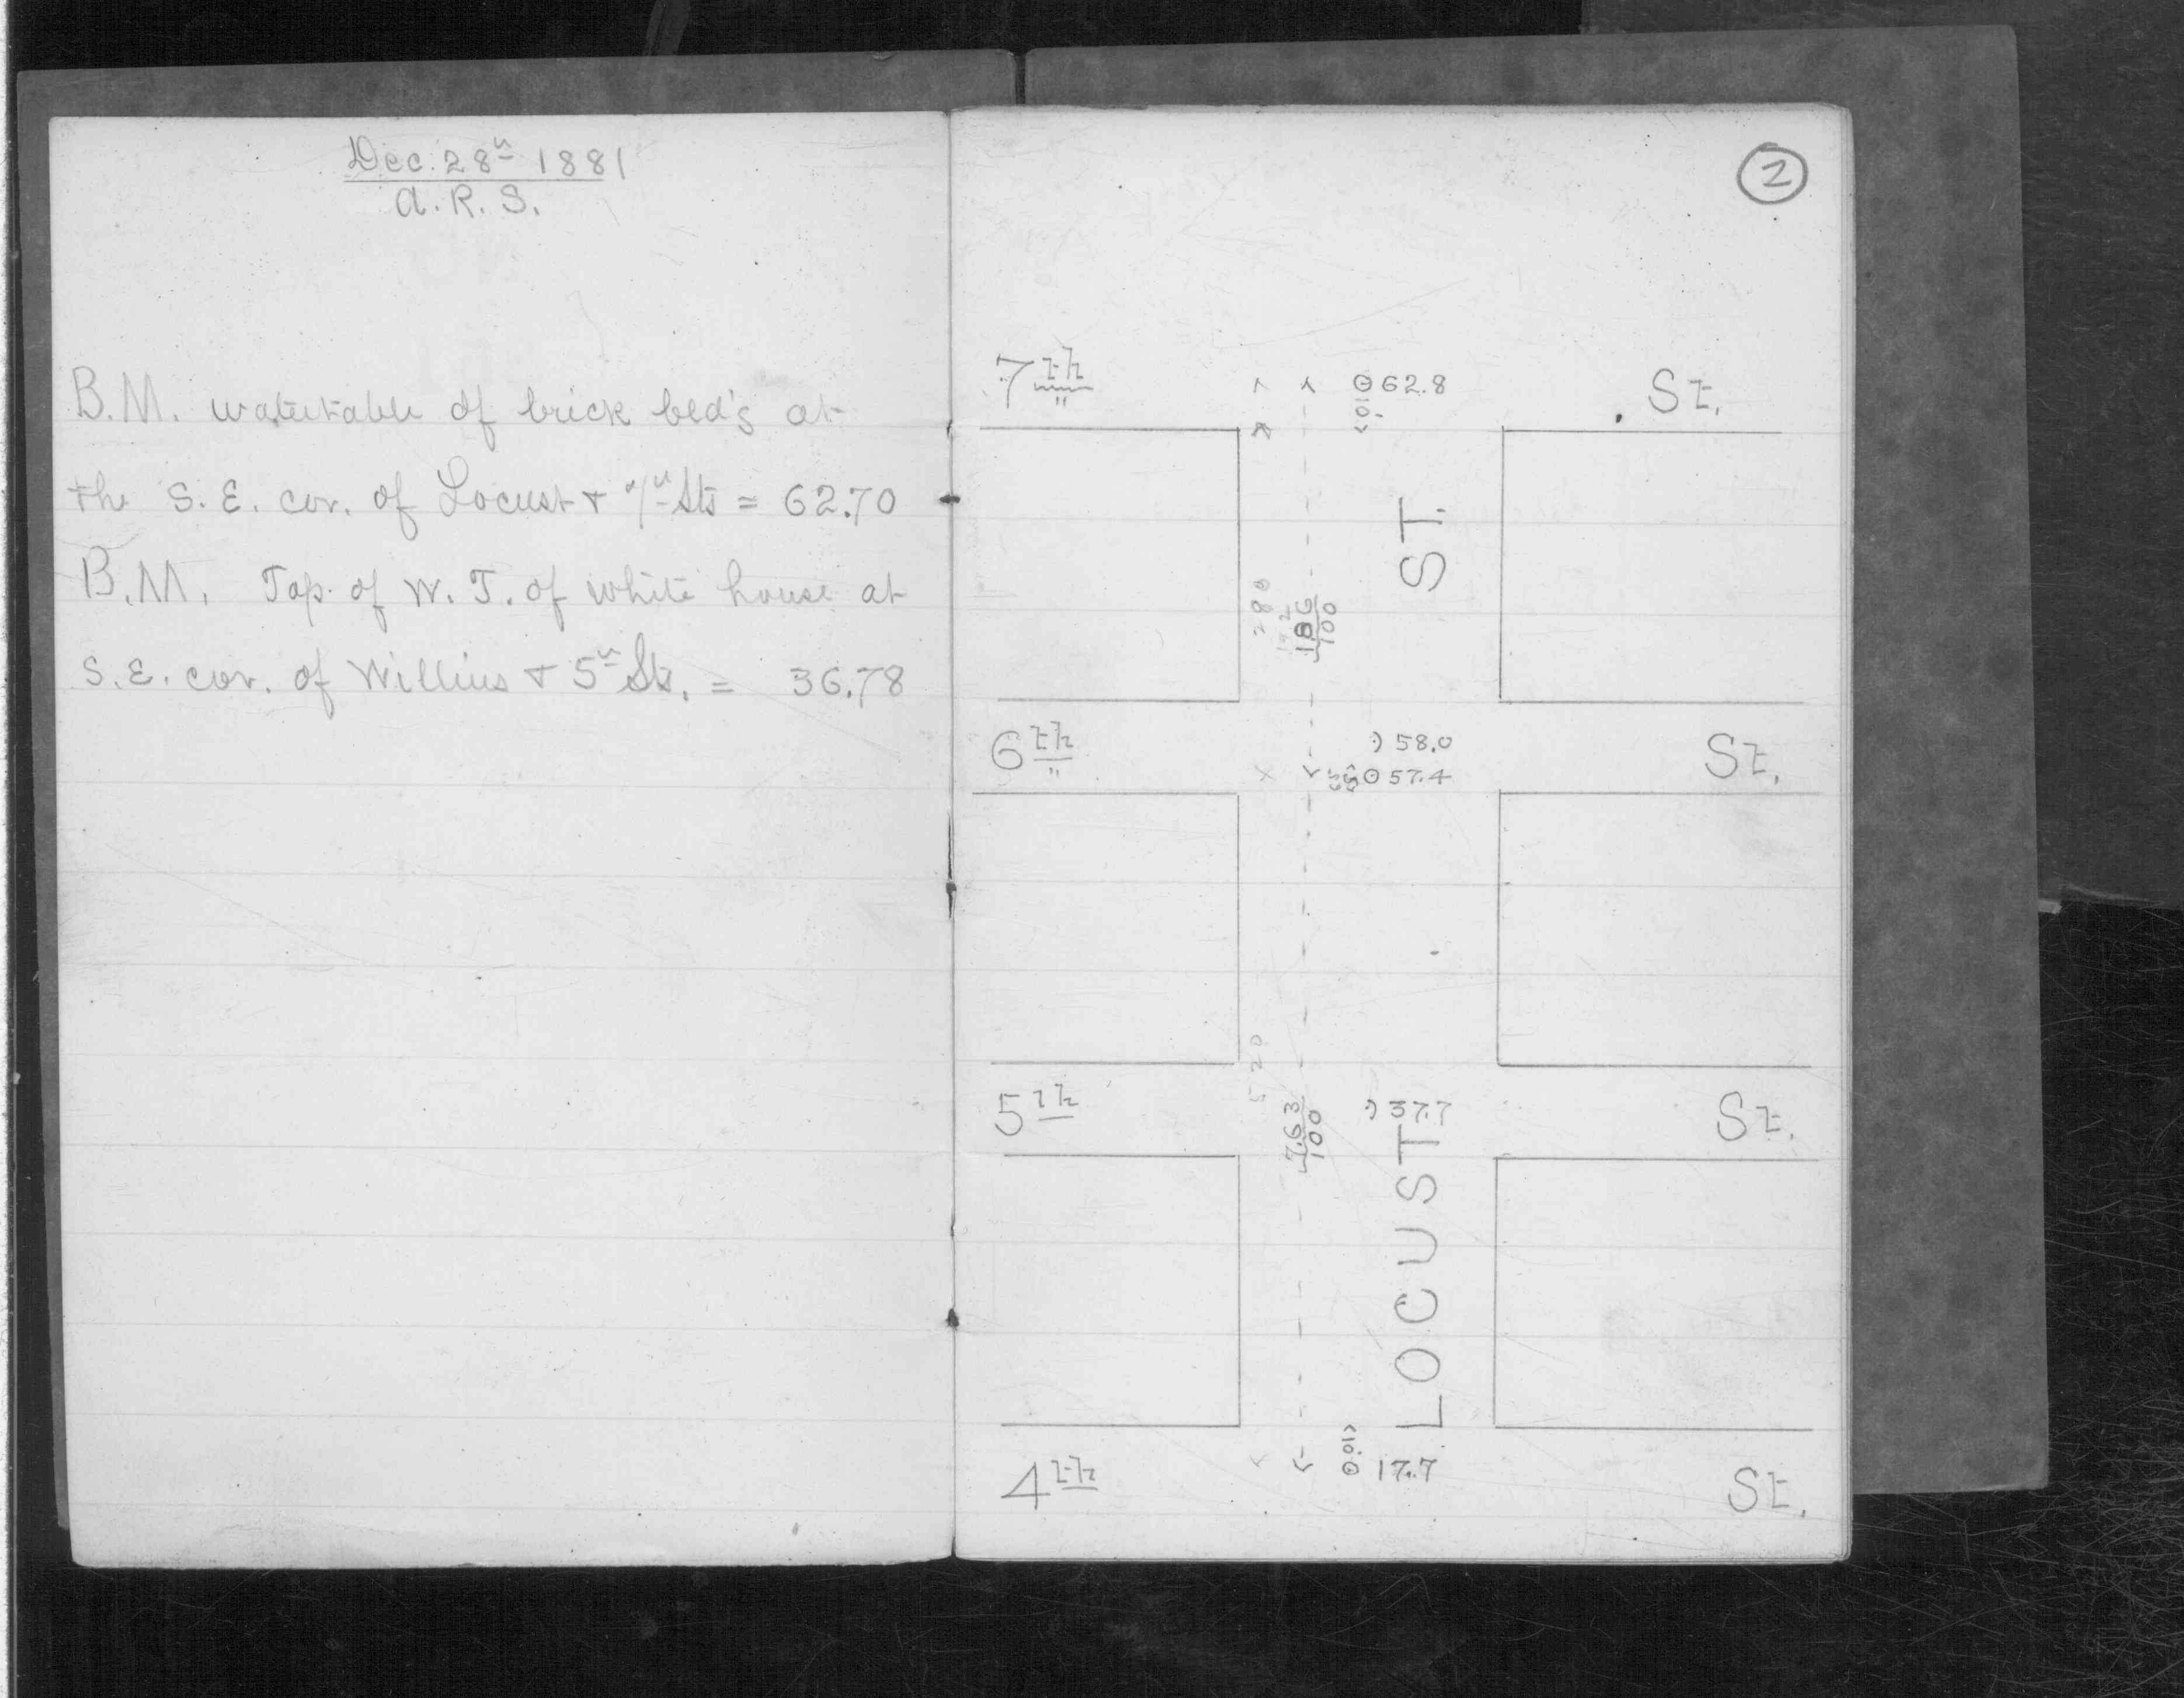 Dec. 28th 1881
A. R. S.
B.M. watertable of brick bld'g at
the S. E. cor. of Locust + 7th Sts = 62.70
B.M. Top of W. T. of white house at
S. E. cor. of Willius + 5th Sts. = 36.78
2
7th St.
62.8
10.
ST.
280
1.86
100
6th St.
58.0
57.4
5th St.
520
7.63
100
37.7
LOCUST
10.0
17.7
4th St.